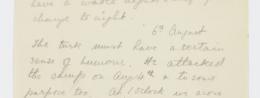 have a whole
change to night.
6th August
The turk must have a certain
sense of humour. He attacked
the camp on Aug 4th & to some
purpose too. At 1 o'clock we were